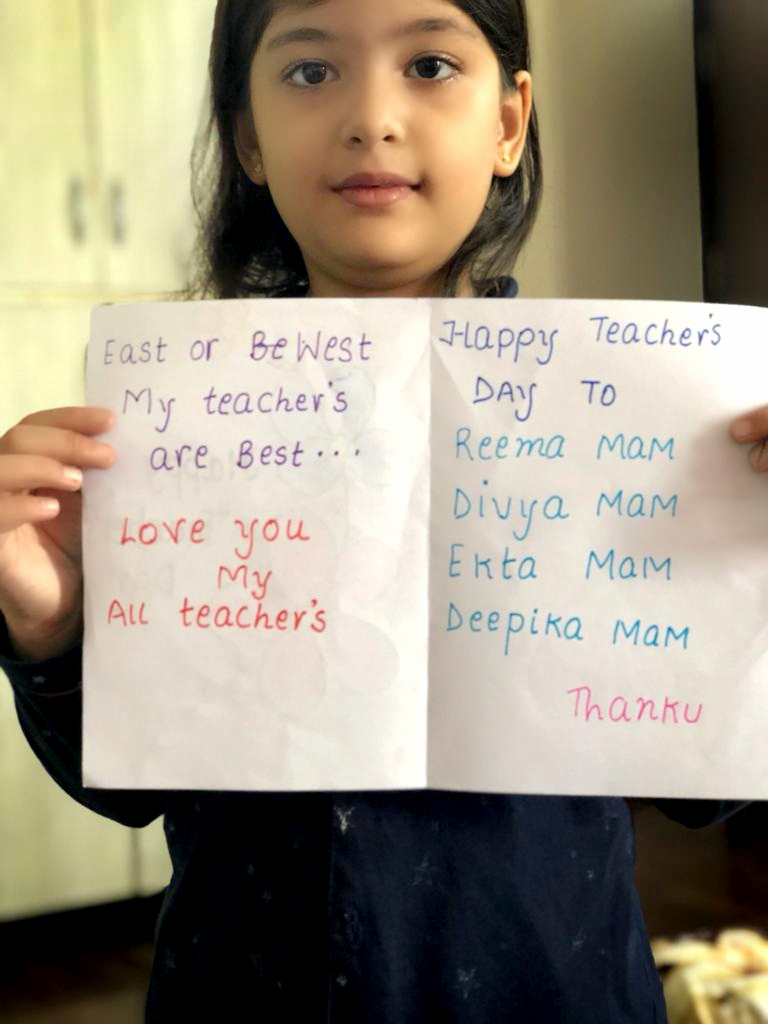 East or West
My teacher's
are Best...
Love you
My
All teacher's
Happy Teacher's
DAY TO
Reema MAM
Divya MAM
Ekta MAM
Deepika MAM
Thanku